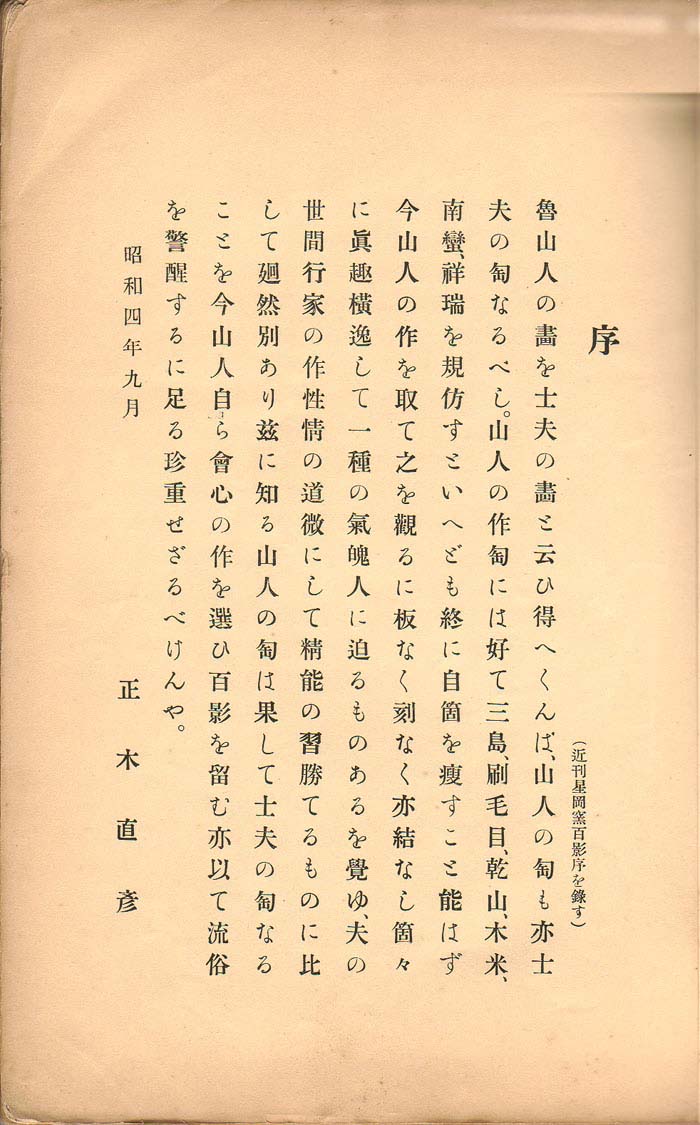 序
(近刊星岡窯百影序を錄す)
魯山人の畵を士夫の畵と云ひ得へくんば、山人の匋も亦士
夫の匋なるべし。山人の作匋には好て三島、刷毛目、乾山、木米、
南蠻、祥瑞を規仿すといへども終に自箇を瘦すこと能はず
今山人の作を取て之を觀るに板なく刻なく亦結なし箇々
に眞趣橫逸して一種の氣魄人に迫るものあるを覺ゆ、夫の
世間行家の作性情の道微にして精能の習勝てるものに比
して廻然別あり玆に知る山人の匋は果して士夫の匋なる
ことを今山人自ら會心の作を選ひ百影を留む亦以て流俗
を警醒するに足る珍重せざるべけんや。
昭和四年九月
正木直彥